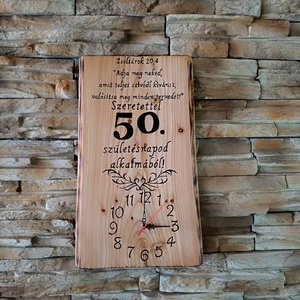 Zsoltárok 20,4
"Adja meg neked,
amit teljes szívből kívánsz,
valósítsa meg minden tervedet!"
Szeretettel
50.
születésnapod
alkalmából!
12
11 1
10 2
9 3
8 4
7 5
6